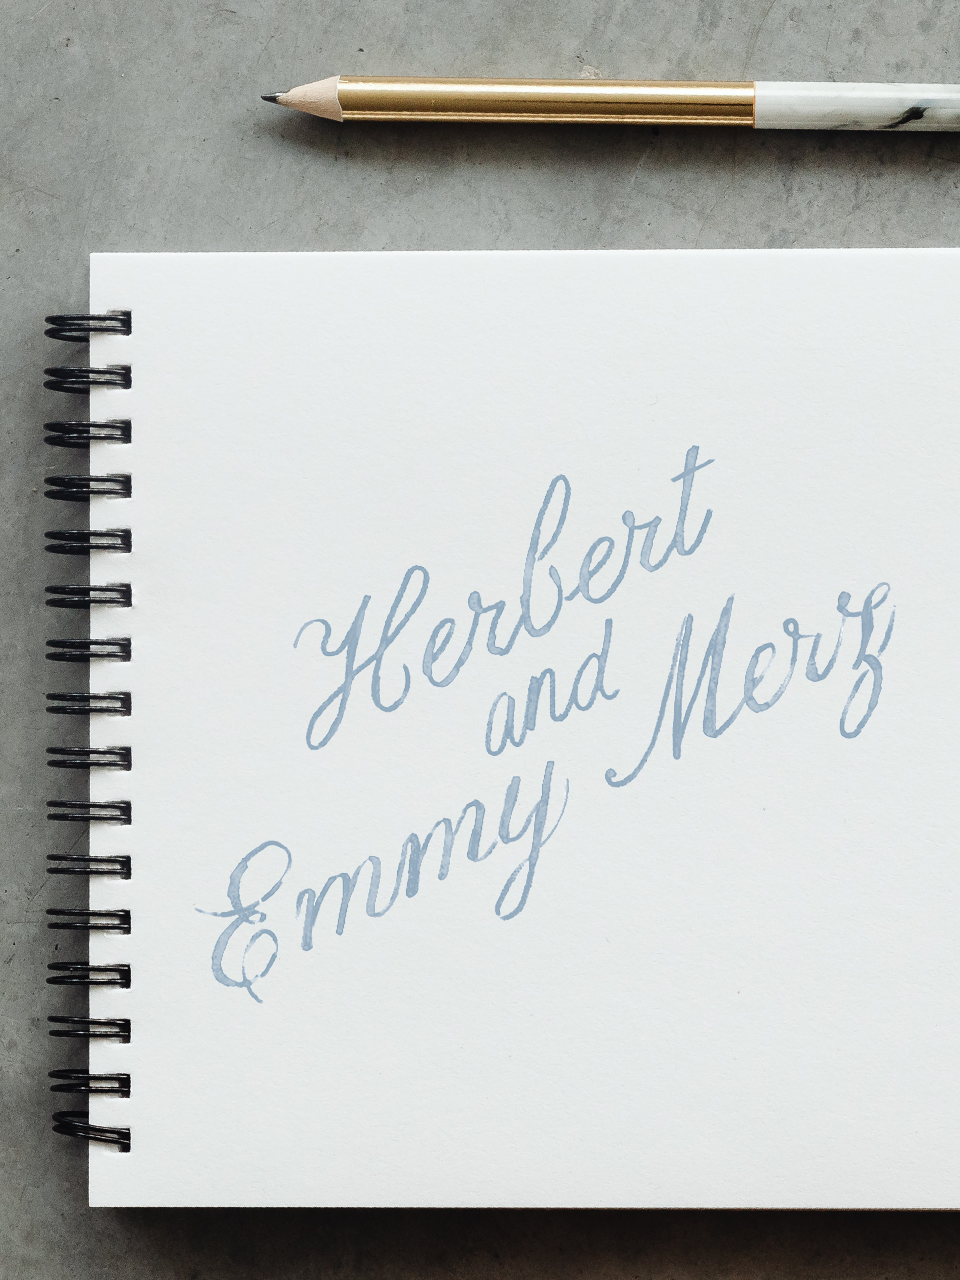 Herbert
and
Emmy Merz